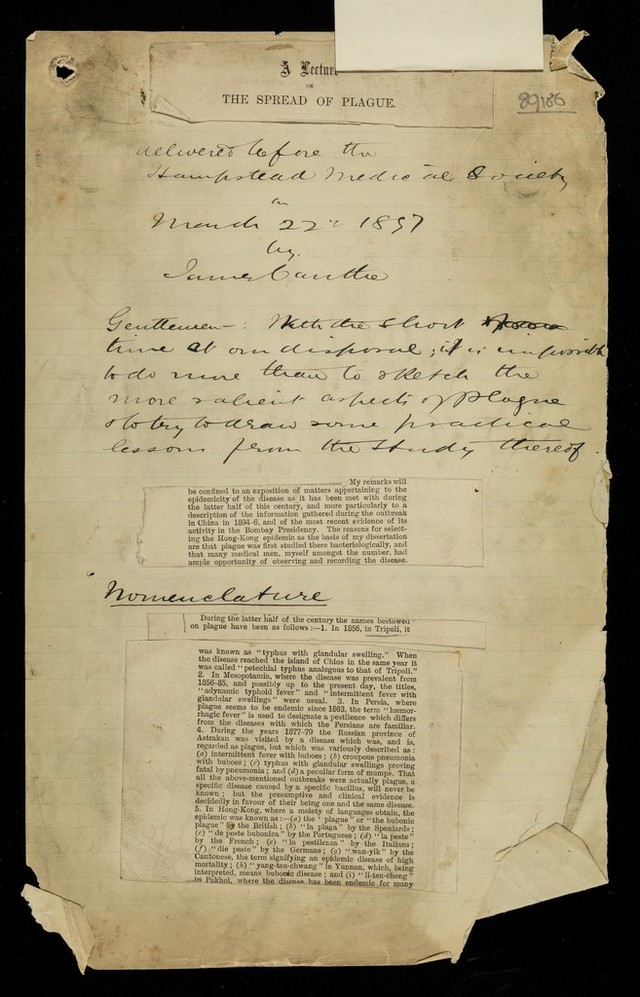 A Lecture
ON
THE SPREAD OF PLAGUE.
89186
delivered before the
Hampstead Medical Society
on
March 22nd 1897
by
James Cantlie
Gentlemen—: With the short
time at our disposal; it is impossible
to do more than to sketch the
more salient aspects of Plague
& to try to draw some practical
lessons from the study thereof.
My remarks will
be confined to an exposition of matters appertaining to the
epidemicity of the disease as it has been met with during
the latter half of this century, and more particularly to a
description of the information gathered during the outbreak
in China in 1894-6, and of the most recent evidence of its
activity in the Bombay Presidency. The reasons for select-
ing the Hong-Kong epidemic as the basis of my dissertation
are that plague was first studied there bacteriologically, and
that many medical men, myself amongst the number, had
ample opportunity of observing and recording the disease.
Nomenclature
During the latter half of the century the names bestowed
on plague have been as follows:—1. In 1856, in Tripoli, it
was known as "typhus with glandular swelling." When
the disease reached the island of Chios in the same year it
was called "petechial typhus analogous to that of Tripoli."
2. In Mesopotamia, where the disease was prevalent from
1856-85, and possibly up to the present day, the titles,
"adynamic typhoid fever" and "intermittent fever with
glandular swellings" were usual. 3. In Persia, where
plague seems to be endemic since 1863, the term "hæmor-
rhagic fever" is used to designate a pestilence which differs
from the diseases with which the Persians are familiar.
4. During the years 1877-79 the Russian province of
Astrakan was visited by a disease which was, and is,
regarded as plague, but which was variously described as:
(a) intermittent fever with buboes; (b) croupous pneumonia
with buboes; (c) typhus with glandular swellings proving
fatal by pneumonia; and (d) a peculiar form of mumps. That
all the above-mentioned outbreaks were actually plague, a
specific disease caused by a specific bacillus, will never be
known; but the presumptive and clinical evidence is
decidedly in favour of their being one and the same disease.
5. In Hong-Kong, where a moiety of languages obtain, the
epidemic was known as:—(a) the "plague" or "the bubonic
plague" by the British; (b) "la plaga" by the Spaniards;
(c) "de peste bubonica" by the Portuguese; (d) "la peste"
by the French; (e) "la pestilenza" by the Italians;
(f) "die peste" by the Germans; (g) "wan-yik" by the
Cantonese, the term signifying an epidemic disease of high
mortality; (h) "yang-tsu-chwang" in Yunnan, which, being
interpreted, means bubonic disease; and (i) "li-tsu-cheng"
in Pakhoi, where the disease has been endemic for many